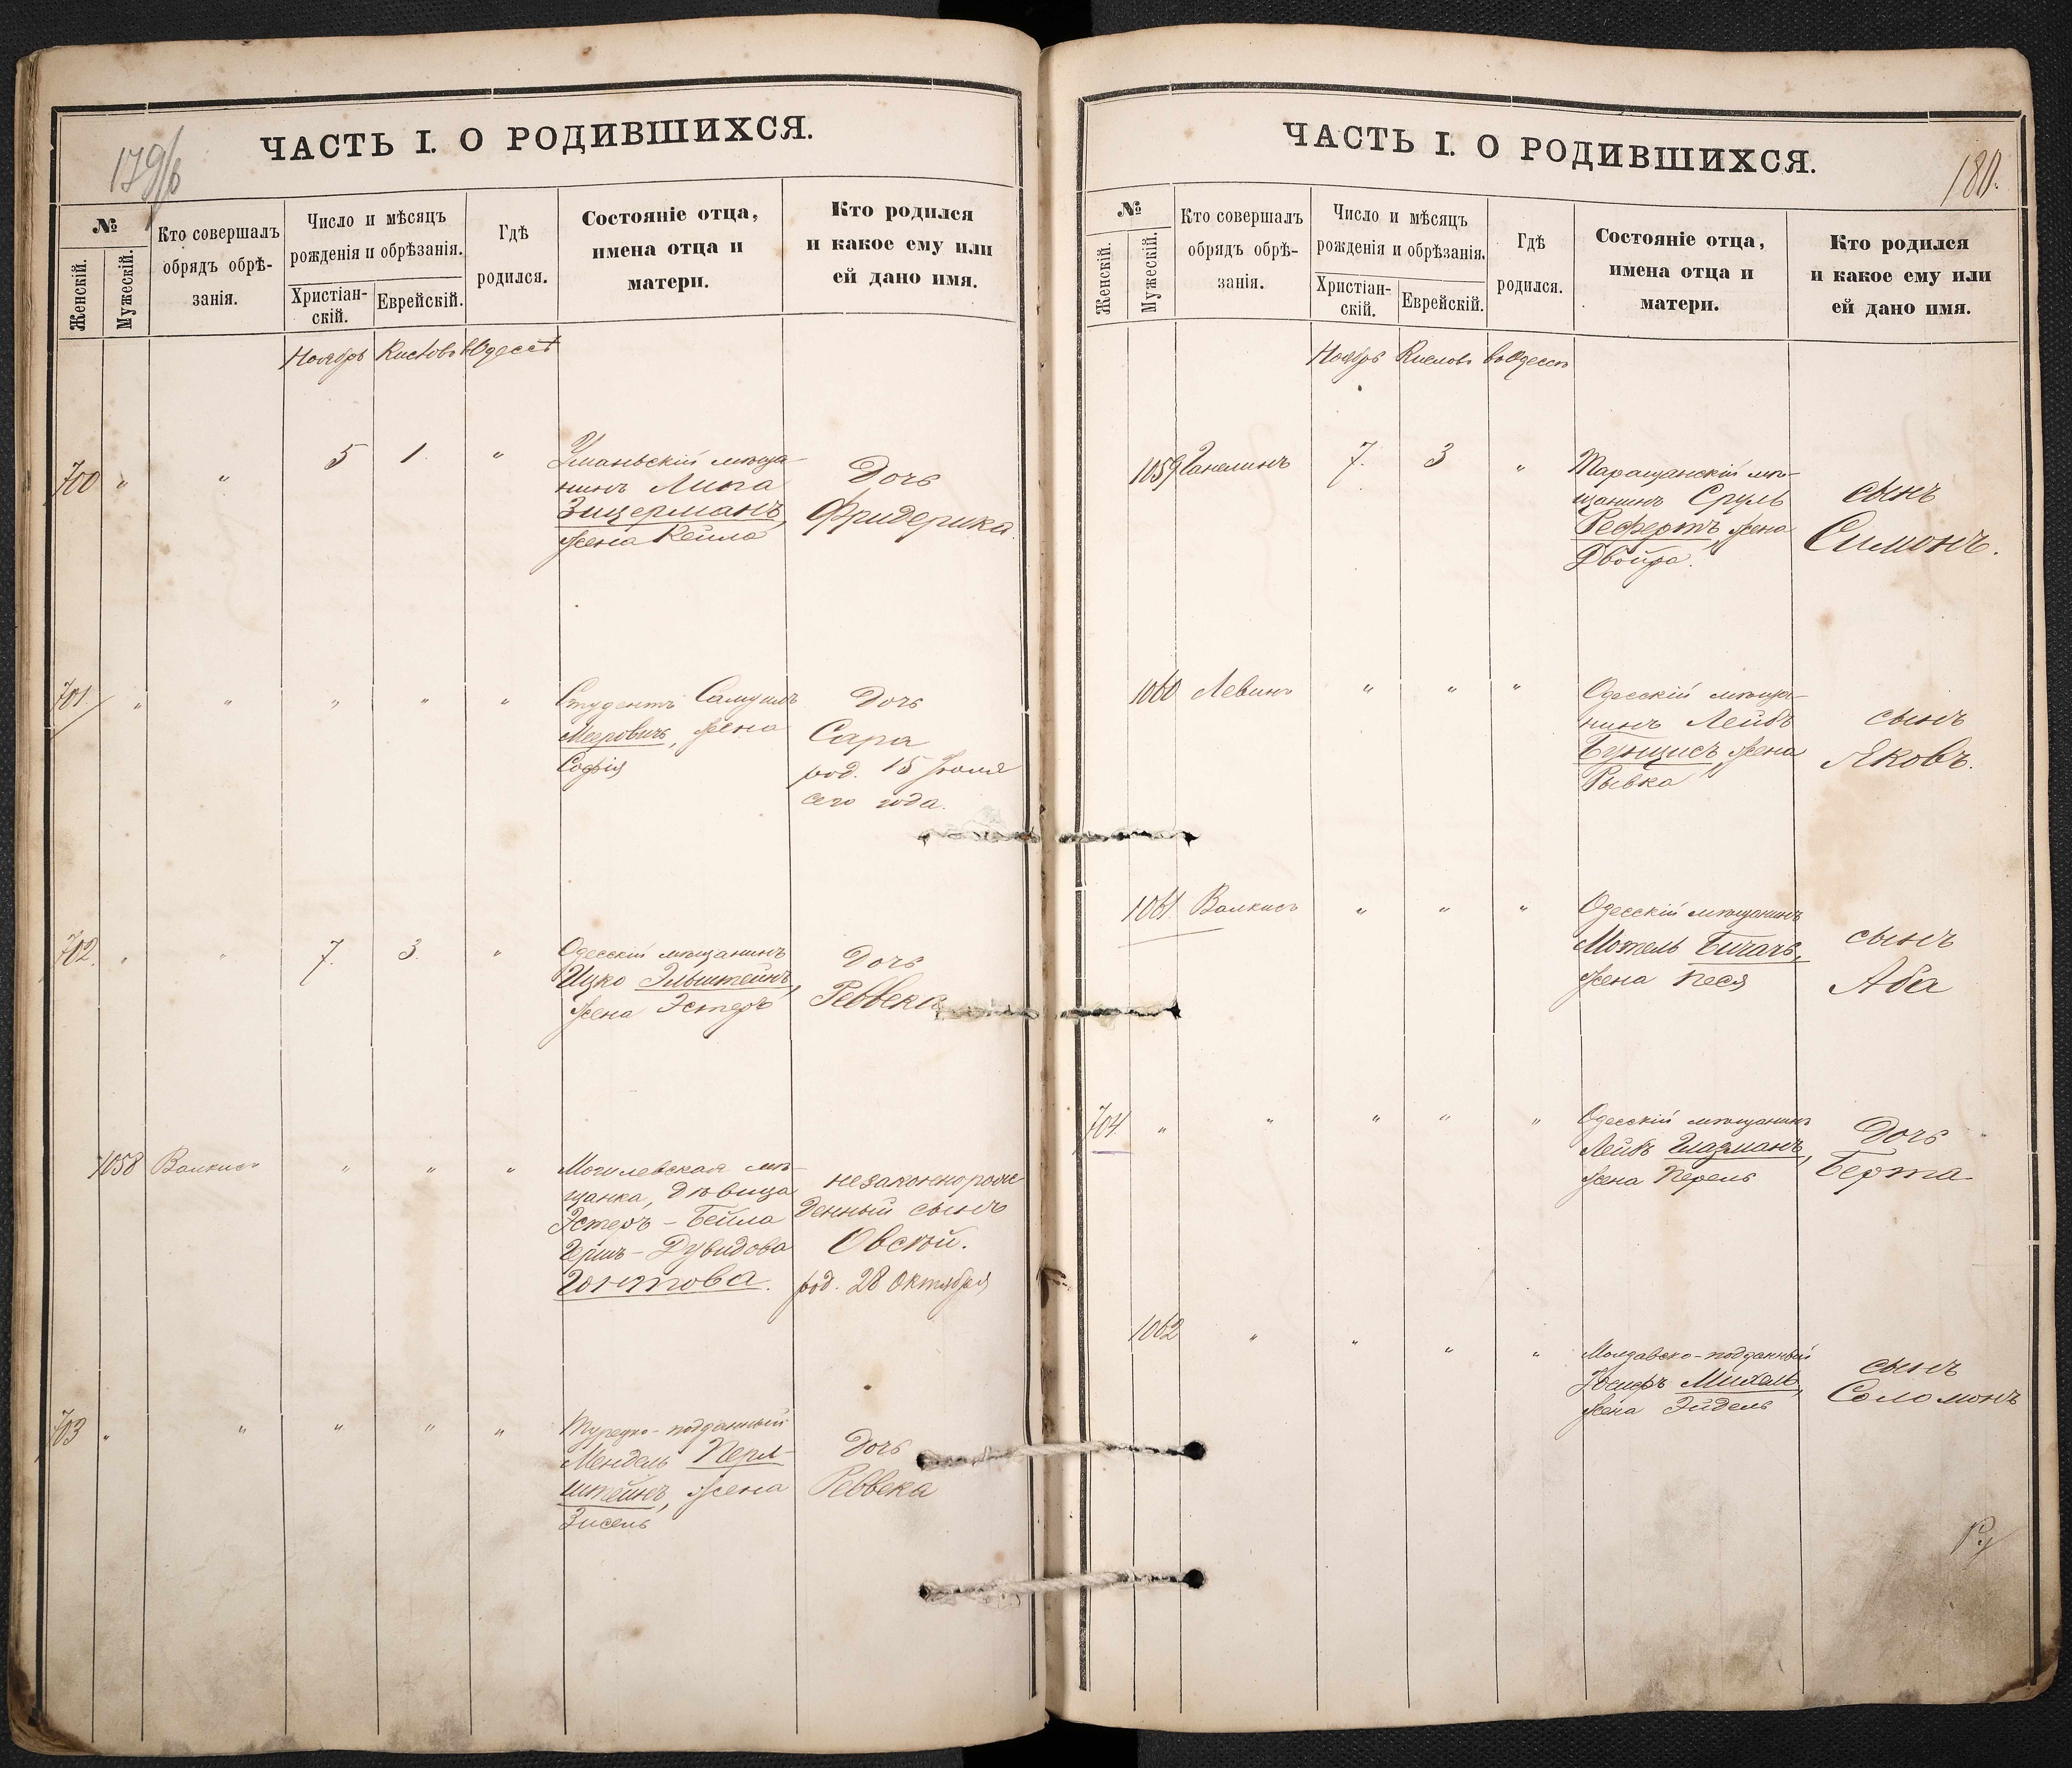 179/б
ЧАСТЬ I. О РОДИВШИХСЯ.
№
Женскій.
Мужескій.
Кто совершалъ
обрядъ обрѣ-
занія.
Число и мѣсяцъ
рожденія и обрѣзанія.
Христіан-
скій.
Еврейскій.
Гдѣ
родился.
Состояніе отца,
имена отца и
матери.
Кто родился
и какое ему или
ей дано имя.
Ноябрь Кислевъ в Одессѣ
700 " " 5 1. "
Уманьскій мѣща-
нинъ Липа
Зицерманъ,
жена Кейла
Дочь
Фридерика.
701. " " " " "
Студентъ Самуилъ
Мееровичъ, жена
Софія
Дочь
Сара
род. 15 Іюля
сего года.
702. " " 7. 3. "
Одесскій мѣщанинъ
Ицко Эльштейнъ,
жена Эстеръ
Дочь
Реввека
1058 Валкисъ " " "
Могилевская мѣ-
щанка, дѣвица
Эстеръ-Бейла
Гершъ-Дувидова
Гонтова.
незаконнорож
денный сынъ
Овсѣй.
род. 28 Октября
703 " " " " "
Турецко-подданный
Мендель Перл-
штейнъ, жена
Зисель
Дочь
Реввека
ЧАСТЬ I. О РОДИВШИХСЯ.
180.
№
Женскій.
Мужескій.
Кто совершалъ
обрядъ обрѣ-
занія.
Число и мѣсяцъ
рожденія и обрѣзанія.
Христіан-
скій.
Еврейскій.
Гдѣ
родился.
Состояніе отца,
имена отца и
матери.
Кто родился
и какое ему или
ей дано имя.
Ноябрь Кислевъ въ Одессѣ
1059 Ганелинъ 7. 3 "
Таращанскій мѣ-
щанинъ Сруль
Рефертъ, жена
Двойра.
сынъ
Симонъ.
1060 Левинъ " " "
Одесскій мѣща-
нинъ Лейбъ
Бунцисъ, жена
Рывка
сынъ
Яковъ.
1061 Валкисъ " " "
Одесскій мѣщанинъ
Мотель Бигачъ,
жена Песя
сынъ
Аба
704 " " " " "
Одесскій мѣщанинъ
Лейбъ Глазманъ,
жена Перель
Дочь
Берта
1062 " " " "
Молдавско-подданный
Іосифъ Михель,
жена Эйдель
сынъ
Соломонъ